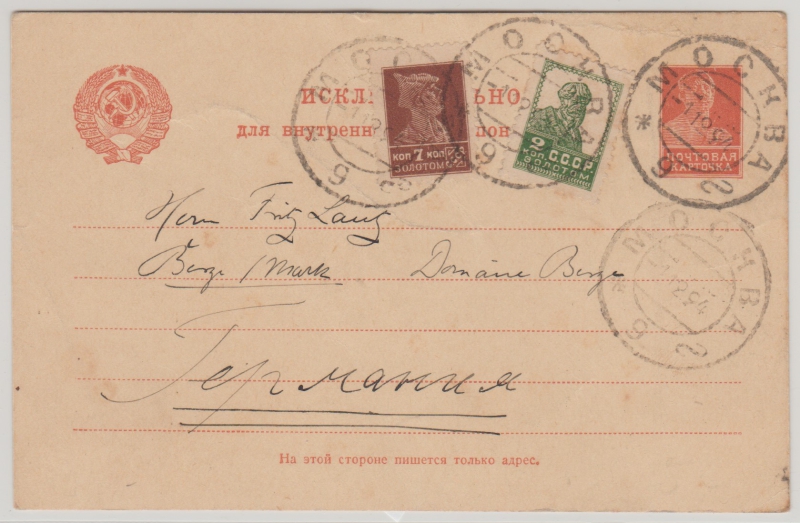 ИСКЛ ЛЬНО
для внутренн
7 КОП
КОП
ЗОЛОТОМ
2
КОП. С.С.С.Р
ЗОЛОТОМ
ПОЧТОВАЯ
КАРТОЧКА
МОСКВА
МОСКВА
МОСКВА
МОСКВА
Herrn Fritz Lang
Berge / Mark Domäne Berge
Германия
На этой стороне пишется только адрес.